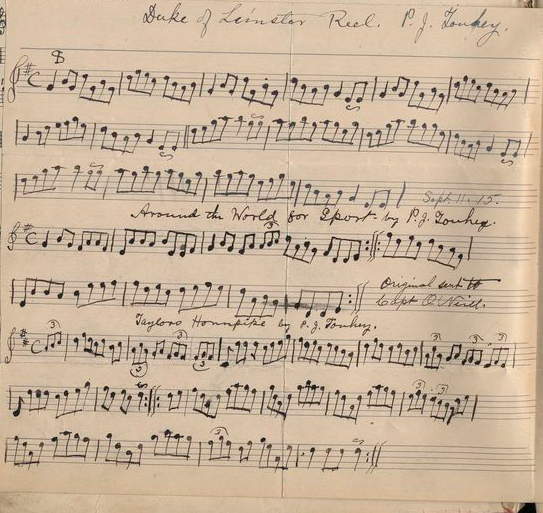 Duke of Leinster Reel. P. J. Touhey.
Sept. 11. 15.
Around the World for Sport by P. J. Touhey.
Original sent to
Capt O'Neill.
Taylors Hornpipe by P. J. Touhey.